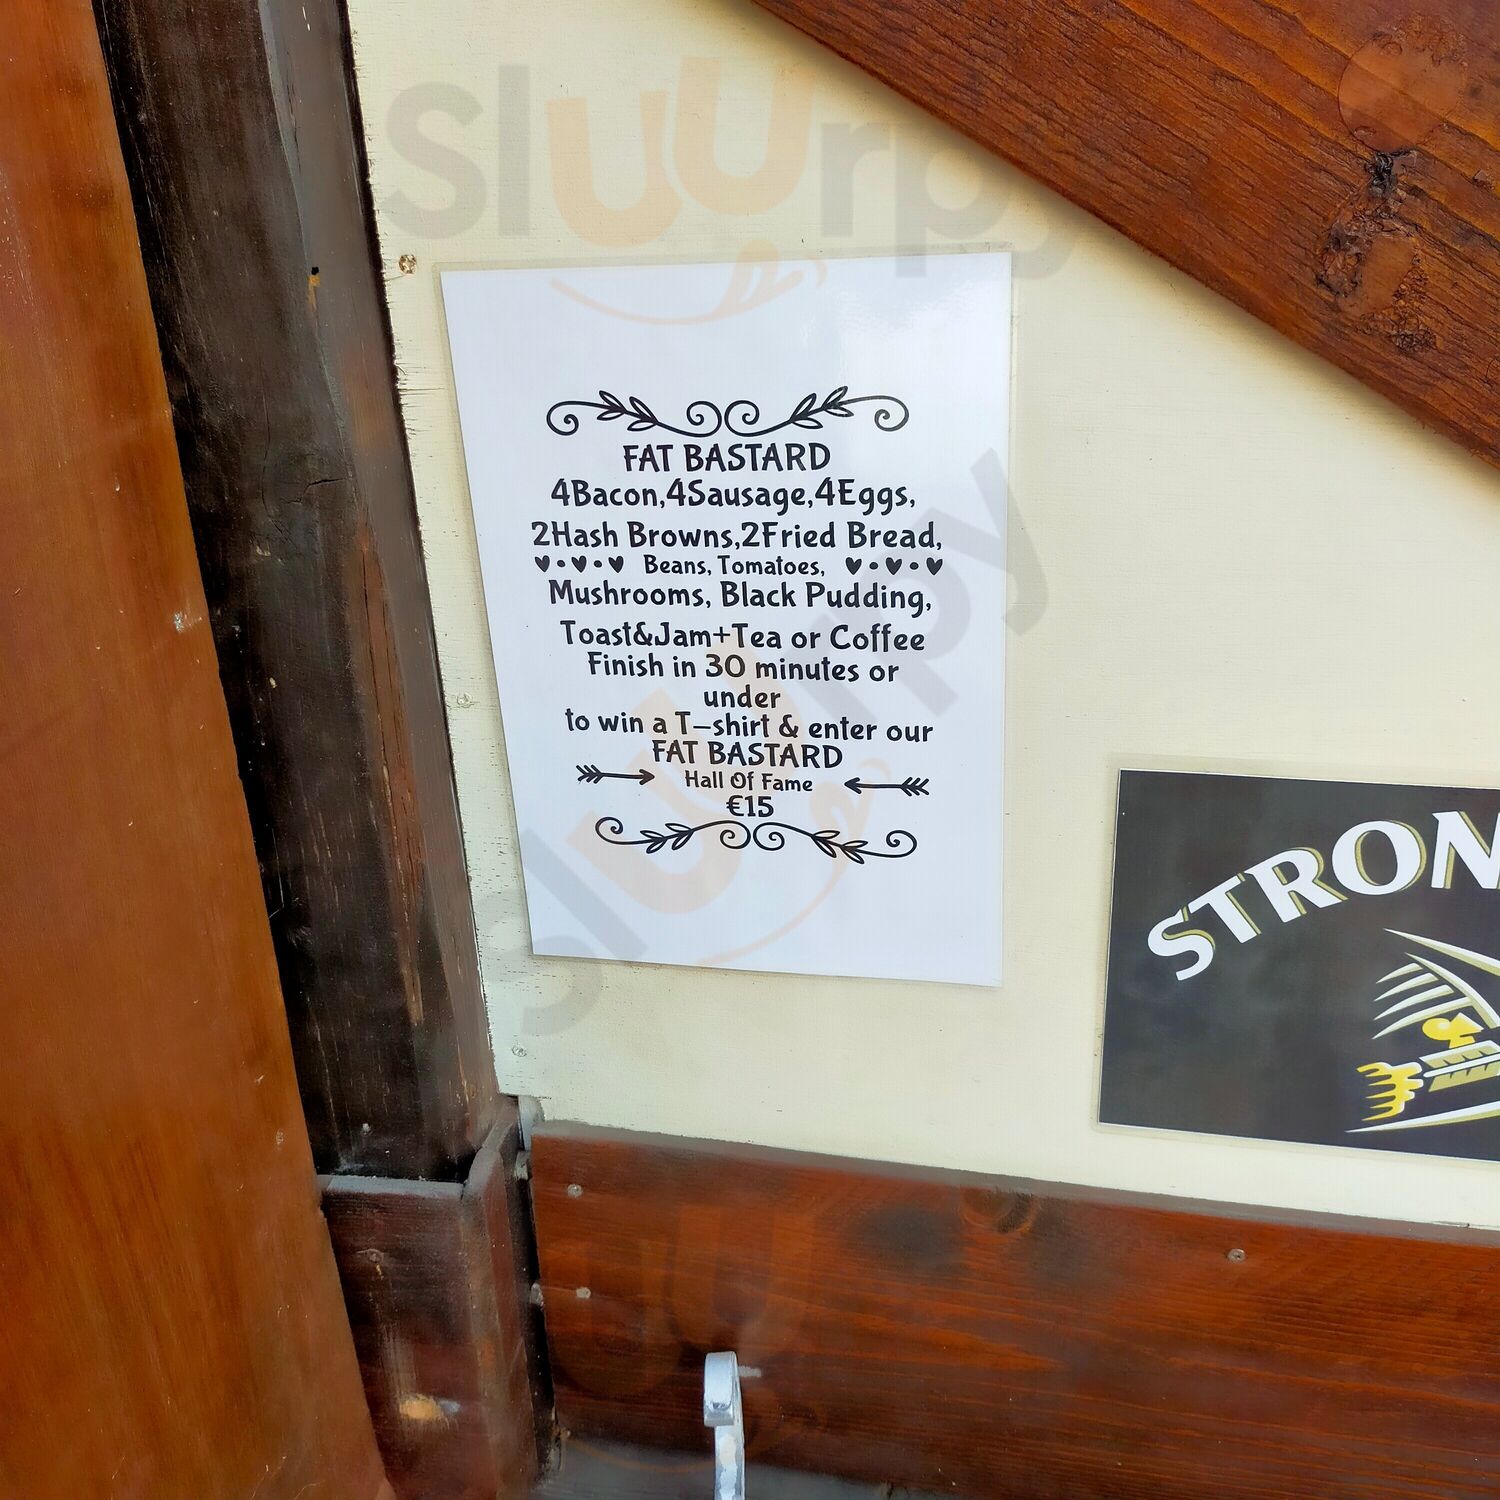 sluurpy
FAT BASTARD
4Bacon,4Sausage,4Eggs,
2Hash Browns,2Fried Bread,
Beans, Tomatoes,
Mushrooms, Black Pudding,
Toast&Jam+Tea or Coffee
Finish in 30 minutes or
under
to win a T-shirt & enter our
FAT BASTARD
Hall Of Fame
€15
sluurpy
STRON